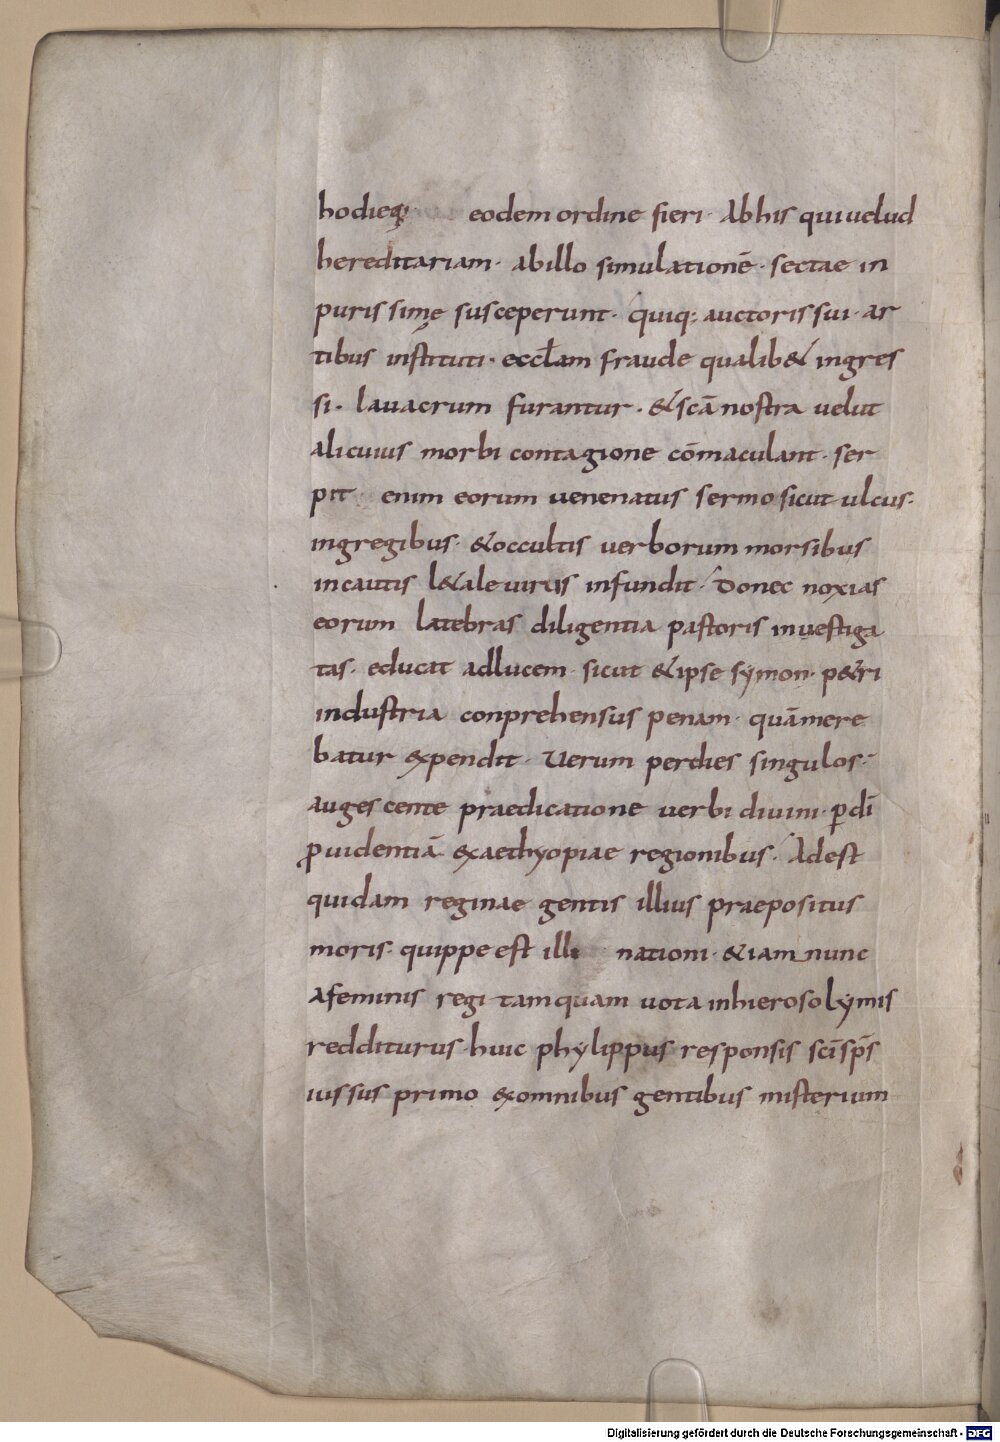 hodieq; eodem ordine fieri · Ab his qui uelud
hereditariam · ab illo simulationē · sectae in
purissimę susceperunt · quiq; auctoris sui · ar
tibus instituti · eccłam fraude qualib& ingres
si · lauacrum furantur · & scā nostra uelut
alicuius morbi contagione cōmaculant · ser
pit enim eorum uenenatus sermo sicut ulcus ·
in gregibus · & occultis uerborum morsibus
incautis l&ale uirus infundit · Donec noxias
eorum latebras diligentia pastoris inuestiga
tas · educat ad lucem · sicut & ipse symon · p&ri
industria conprehensus penam · quā mere
batur expendit · Uerum per dies singulos ·
augescente praedicatione uerbi diuini · ꝑ dī
ꝓuidentiā · ex aethyopiae regionibus · Adest
quidam reginae gentis illius praepositus
moris · quippe est illi nationi · & iam nunc
a feminis regi tamquam uota in hierosolymis
redditurus · huic phylippus responsis scī sp̄s
iussus primo ex omnibus gentibus misterium
Digitalisierung gefördert durch die Deutsche Forschungsgemeinschaft - DFG